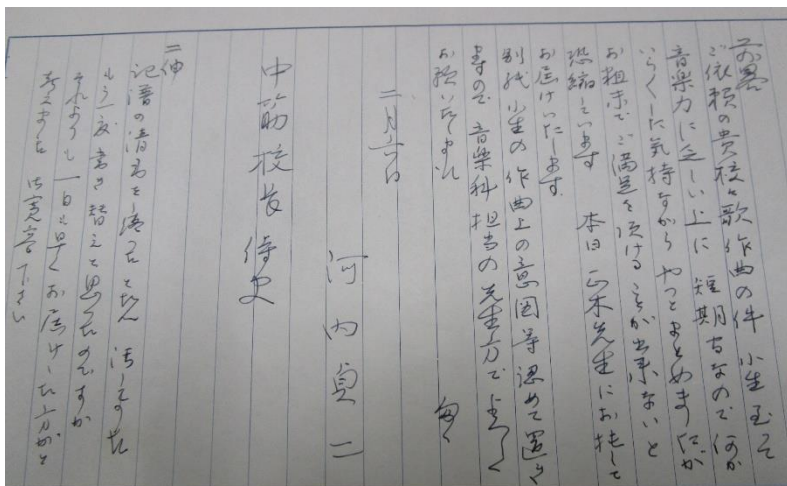 前略
ご依頼の貴校々歌作曲の件 小生至って
音楽力に乏しい上に 短期間なので 何か
いらいらした気持ながら やっとまとめましたが
お粗末でご満足を頂けることが出来ないと
恐縮しています 本日 正木先生にお托して
お届けいたします
別紙 小生の作曲上の意図等認めて置き
ますので 音楽科担当の先生方で よろしく
お願いいたします 匆々
二月六日
河内貞二
中筋校長 侍史
二伸
記譜の清書を
もう一度書き替えと思ったのですが
それよりも 一日も早くお届けした方がと
考えました 御寛容下さい